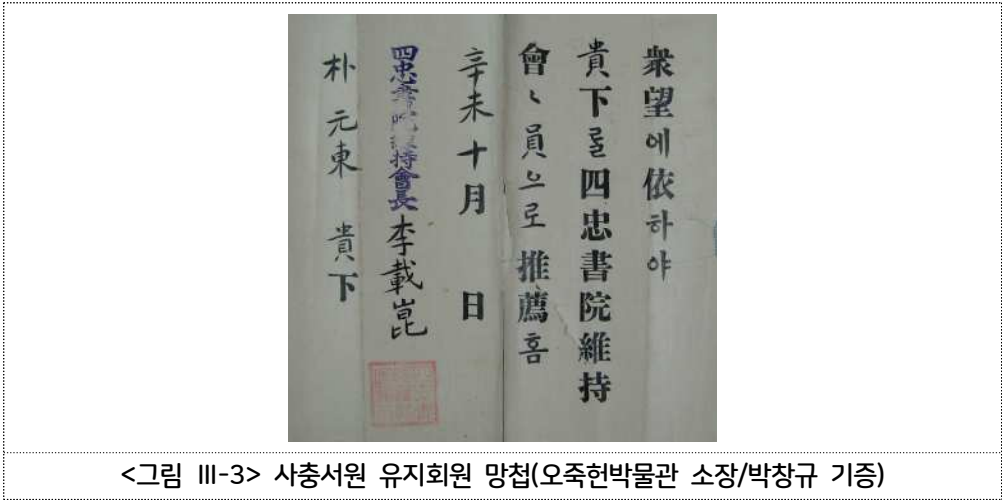 衆望에依하야
貴下를四忠書院維持
會〻員으로推薦홈
辛未十月 日
四忠書院維持會長李載崑
朴元東 貴下
<그림 Ⅲ-3> 사충서원 유지회원 망첩(오죽헌박물관 소장/박창규 기증)